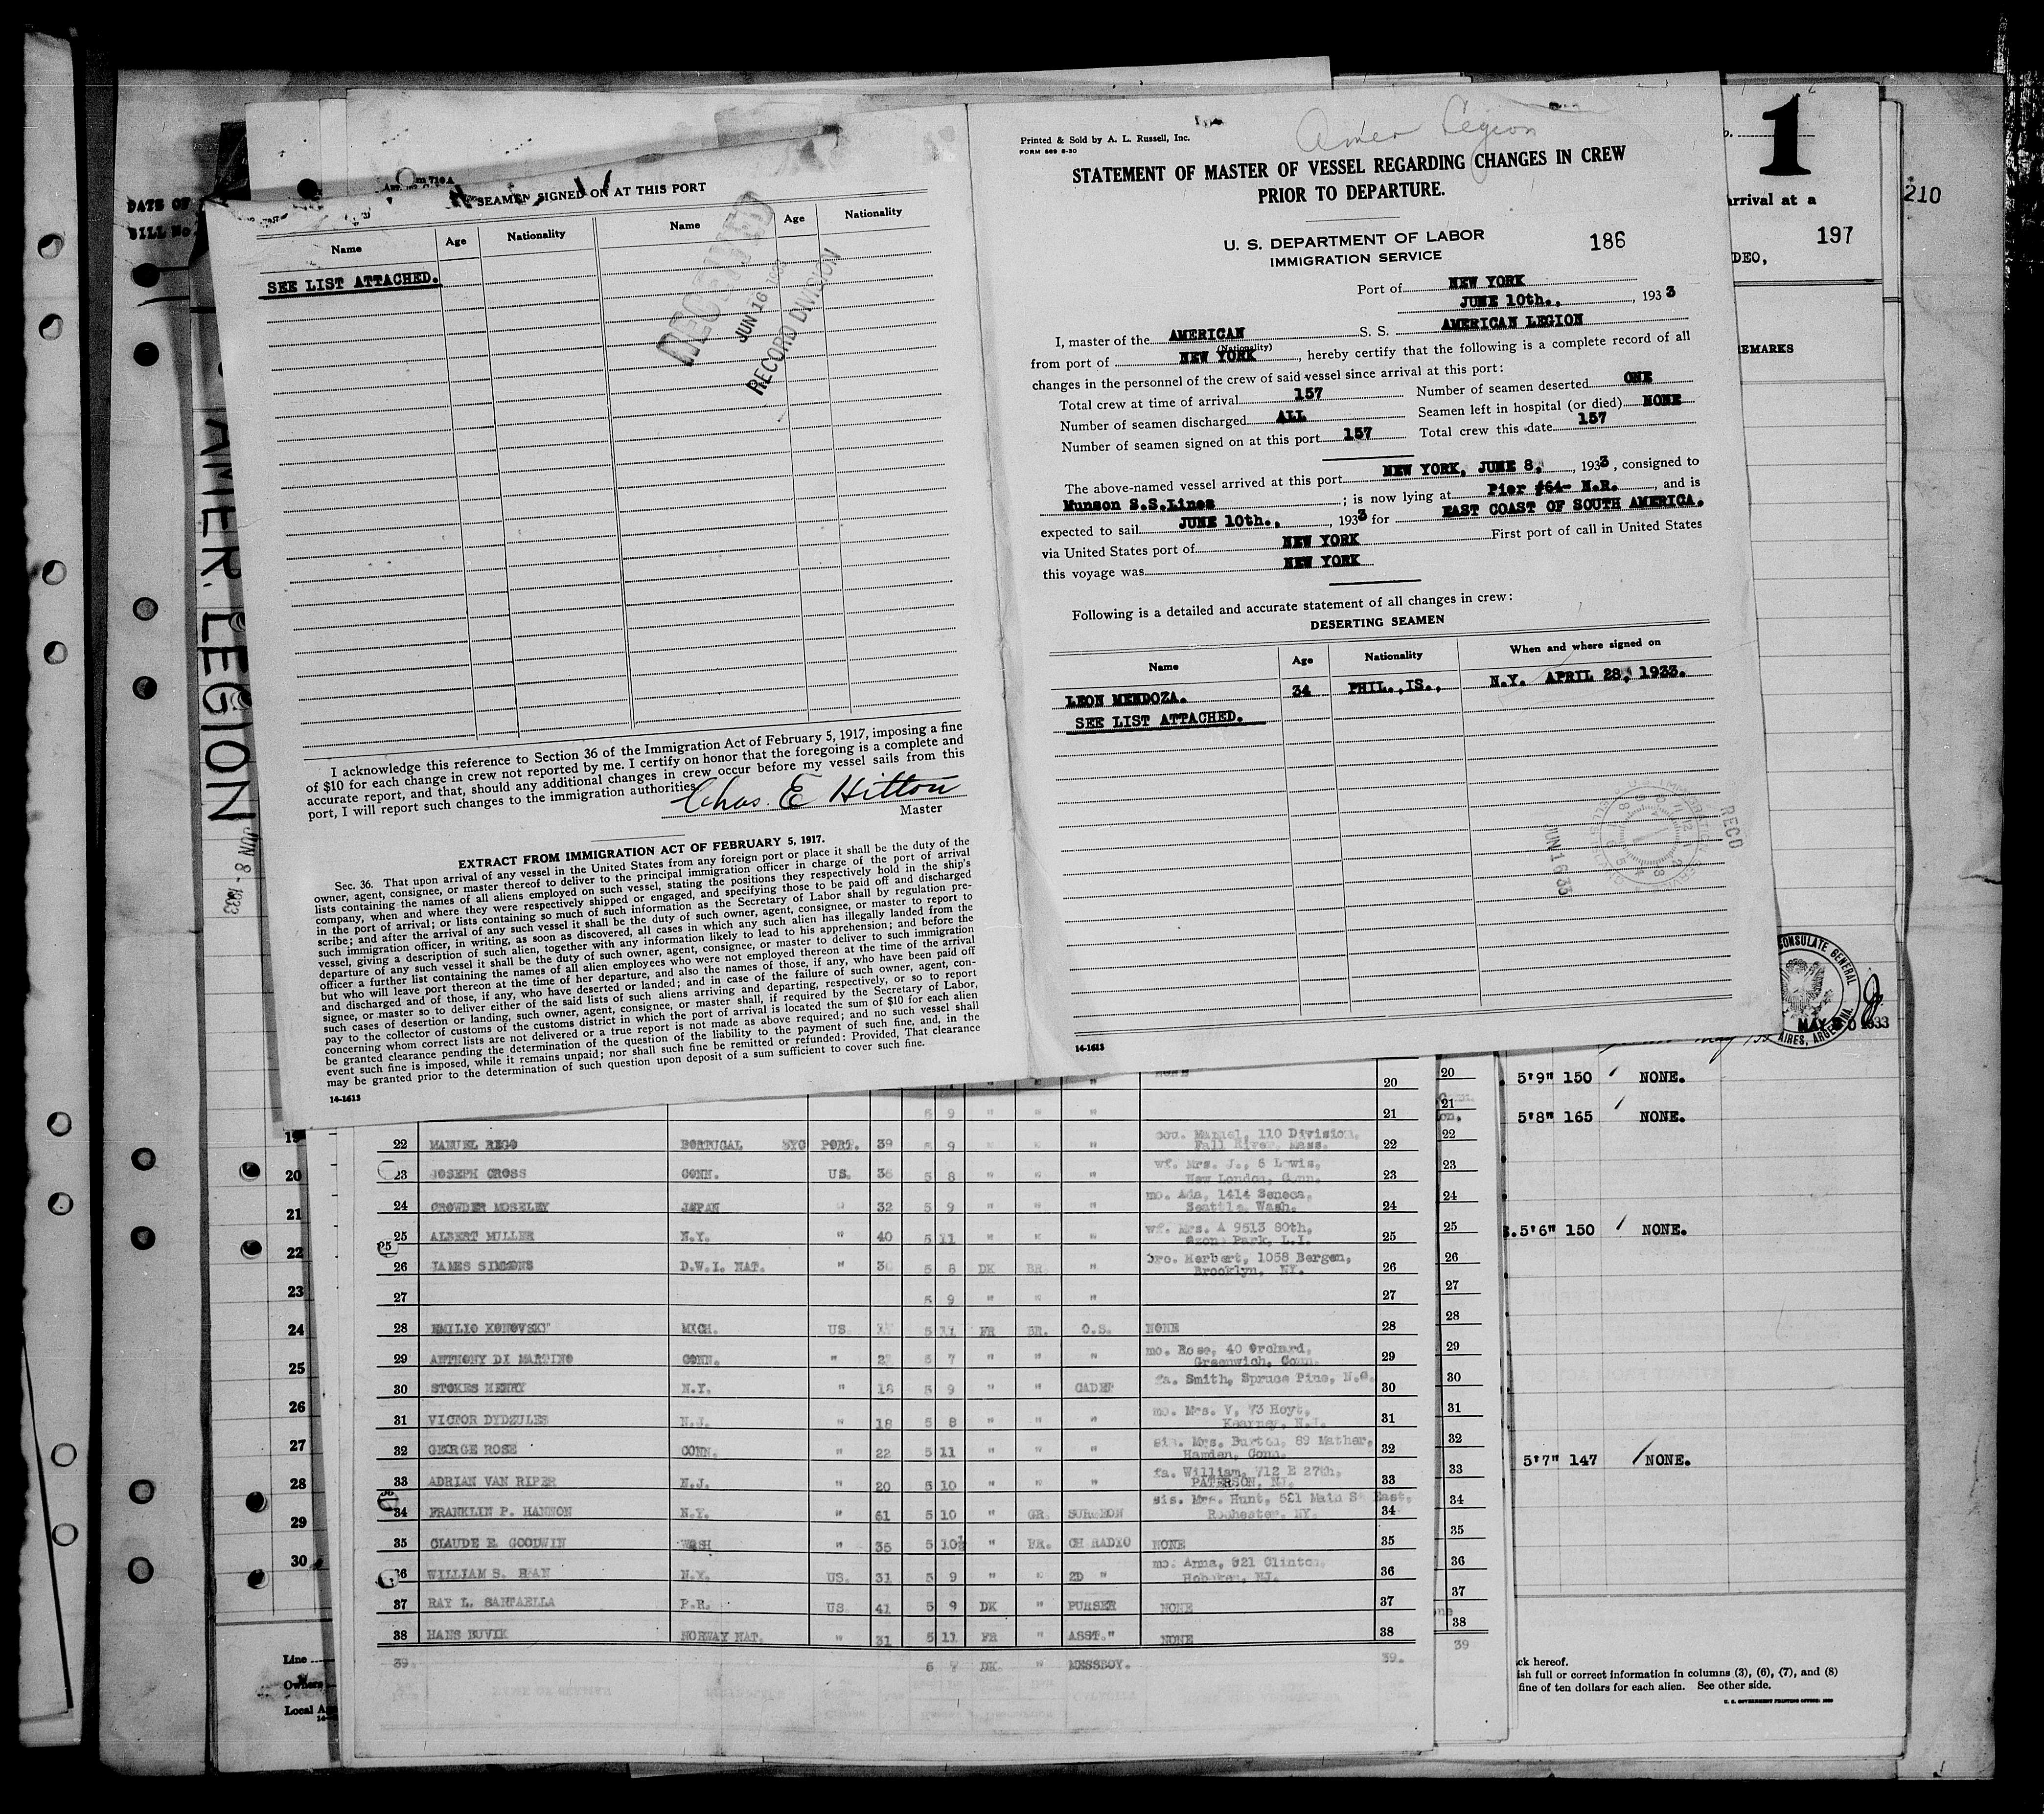 SEAMEN SIGNED ON AT THIS PORT
Name Age Nationality Name Age Nationality
SEE LIST ATTACHED.
RECEIVED
JUN 16 1933
RECORD DIVISION
I acknowledge this reference to Section 36 of the Immigration Act of February 5, 1917, imposing a fine
of $10 for each change in crew not reported by me. I certify on honor that the foregoing is a complete and
accurate report, and that, should any additional changes in crew occur before my vessel sails from this
port, I will report such changes to the immigration authorities.
Chas. E Hitton
Master
EXTRACT FROM IMMIGRATION ACT OF FEBRUARY 5, 1917.
Sec. 36. That upon arrival of any vessel in the United States from any foreign port or place it shall be the duty of the
owner, agent, consignee, or master thereof to deliver to the principal immigration officer in charge of the port of arrival
lists containing the names of all aliens employed on such vessel, stating the positions they respectively hold in the ship's
company, when and where they were respectively shipped or engaged, and specifying those to be paid off and discharged
in the port of arrival; or lists containing so much of such information as the Secretary of Labor shall by regulation pre-
scribe; and after the arrival of any such vessel it shall be the duty of such owner, agent, consignee, or master to report to
such immigration officer, in writing, as soon as discovered, all cases in which any such alien has illegally landed from the
vessel, giving a description of such alien, together with any information likely to lead to his apprehension; and before the
departure of any such vessel it shall be the duty of such owner, agent, consignee, or master to deliver to such immigration
officer a further list containing the names of all alien employees who were not employed thereon at the time of the arrival
but who will leave port thereon at the time of her departure, and also the names of those, if any, who have been paid off
and discharged and of those, if any, who have deserted or landed; and in case of the failure of such owner, agent, con-
signee, or master so to deliver either of the said lists of such aliens arriving and departing, respectively, or so to report
such cases of desertion or landing, such owner, agent, consignee, or master shall, if required by the Secretary of Labor,
pay to the collector of customs of the customs district in which the port of arrival is located the sum of $10 for each alien
concerning whom correct lists are not delivered or a true report is not made as above required; and no such vessel shall
be granted clearance pending the determination of the question of the liability to the payment of such fine, and, in the
event such fine is imposed, while it remains unpaid; nor shall such fine be remitted or refunded: Provided, That clearance
may be granted prior to the determination of such question upon deposit of a sum sufficient to cover such fine.
14-1613
Amer Legion
Printed & Sold by A. L. Russell, Inc.
FORM 689 8-30
STATEMENT OF MASTER OF VESSEL REGARDING CHANGES IN CREW
PRIOR TO DEPARTURE.
U. S. DEPARTMENT OF LABOR
IMMIGRATION SERVICE
186
Port of NEW YORK
JUNE 10th., , 1933
I, master of the AMERICAN S. S. AMERICAN LEGION
(Nationality)
from port of NEW YORK , hereby certify that the following is a complete record of all
changes in the personnel of the crew of said vessel since arrival at this port:
Total crew at time of arrival 157 Number of seamen deserted ONE
Number of seamen discharged ALL Seamen left in hospital (or died) NONE
Number of seamen signed on at this port 157 Total crew this date 157
The above-named vessel arrived at this port NEW YORK, JUNE 8, , 1933, consigned to
Munson S.S.Lines ; is now lying at Pier #64- N.R. , and is
expected to sail JUNE 10th., , 1933 for EAST COAST OF SOUTH AMERICA.
via United States port of NEW YORK First port of call in United States
this voyage was NEW YORK
Following is a detailed and accurate statement of all changes in crew:
DESERTING SEAMEN
Name Age Nationality When and where signed on
LEON MENDOZA. 34 PHIL. IS., N.Y. APRIL 28, 1933.
SEE LIST ATTACHED.
JUN 16 33
RECD
14-1613
DATE OF
BILL No
AMER. LEGION
JUN 8 - 1933
1
arrival at a
197
DEO,
210
REMARKS
CONSULATE GENERAL
MAY 1933
AIRES, ARGENTINA
5'9" 150 NONE.
5'8" 165 NONE.
5'6" 150 NONE.
5'7" 147 NONE.
20
5 9 " " " 21
22 MANUEL REGO PORTUGAL PORT. 39 5 9 " " " cou. Manuel, 110 Division, Fall River, Mass. 22
23 JOSEPH CROSS CONN. US. 36 5 8 " " " wf. Mrs. J., 6 Lewis, New London, Conn. 23
24 CROWDER MOSELEY JAPAN " 32 5 9 " " " mo. Ada, 1414 Seneca, Seattle, Wash. 24
25 ALBERT MULLER N.Y. " 40 5 11 " " " wf. Mrs. A 9513 80th, Ozone Park, L.I. 25
26 JAMES SIMMONS D.W.I. NAT. " 5 8 DK BR. " bro. Herbert, 1058 Bergen, Brooklyn, NY. 26
27 5 9 " " " 27
28 EMILIO KONOVSKY MICH. US 5 11 FR BR. O.S. NONE 28
29 ANTHONY DI MARTINO CONN. " 5 7 " " " mo. Rose, 40 Orchard, Greenwich, Conn. 29
30 STOKES HENRY N.Y. " 18 5 9 " " CADET fa. Smith, Spruce Pine, N.C. 30
31 VICTOR DYDZULES N.J. " 18 5 8 " " " mo. Mrs. V, 73 Hoyt, Kearney, N.J. 31
32 GEORGE ROSE CONN. " 22 5 11 " " " sis. Mrs. Burton, 89 Mather, Hamden, Conn. 32
33 ADRIAN VAN RIPER N.J. " 20 5 10 " " " fa. William, 712 E 27th, PATERSON, NJ. 33
34 FRANKLIN P. HANNON N.Y. " 61 5 10 " GR. SURGEON sis. Mrs. Hunt, 521 Main St East, Rochester, NY. 34
35 CLAUDE E. GOODWIN WASH " 35 5 10½ " BR. CH RADIO NONE 35
36 WILLIAM S. N.Y. US. 31 5 9 " " 2D " mo. Anna, 921 Clinton, Hoboken, NJ. 36
37 RAY L. SANTAELLA P.R. US 41 5 9 DK " PURSER NONE 37
38 HANS BUVIK NORWAY NAT. " 31 5 11 FR " ASST." NONE 38
39. DK. " MESSBOY. 39.
20
21
22
23
24
25
26
27
28
29
30
31
32
33
34
35
36
37
38
39
19
20
21
22
23
24
25
26
27
28
29
30
Line
Owners
Local
ck hereof.
ish full or correct information in columns (3), (6), (7), and (8)
fine of ten dollars for each alien. See other side.
U. S. GOVERNMENT PRINTING OFFICE